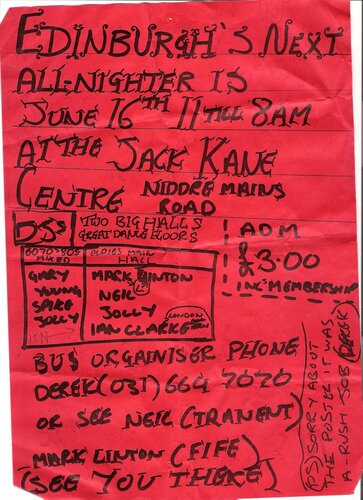 EDINBURGH'S NEXT
ALLNIGHTER IS
JUNE 16TH 11 TILL 8AM
AT THE JACK KANE
CENTRE NIDDRE MAINS
ROAD
DJ'S
TWO BIG HALLS
GREAT DANCE FLOORS
60 70-80S
MIXED
GARY
YOUNG
SPIKE
JOLLY
OLDIES MAIN
HALL
MARK LINTON
NEIL
JOLLY
IAN CLARKE
LONDON
ADM
£3.00
INC MEMBERSHIP
BUS ORGAINISER PHONE
DEREK (031) 669 7070
OR SEE NEIL (TRANENT)
MARK LINTON (FIFE)
(SEE YOU THERE)
(PS) SORRY ABOUT
THE POSTER IT WAS
A-RUSH JOB (DEREK)